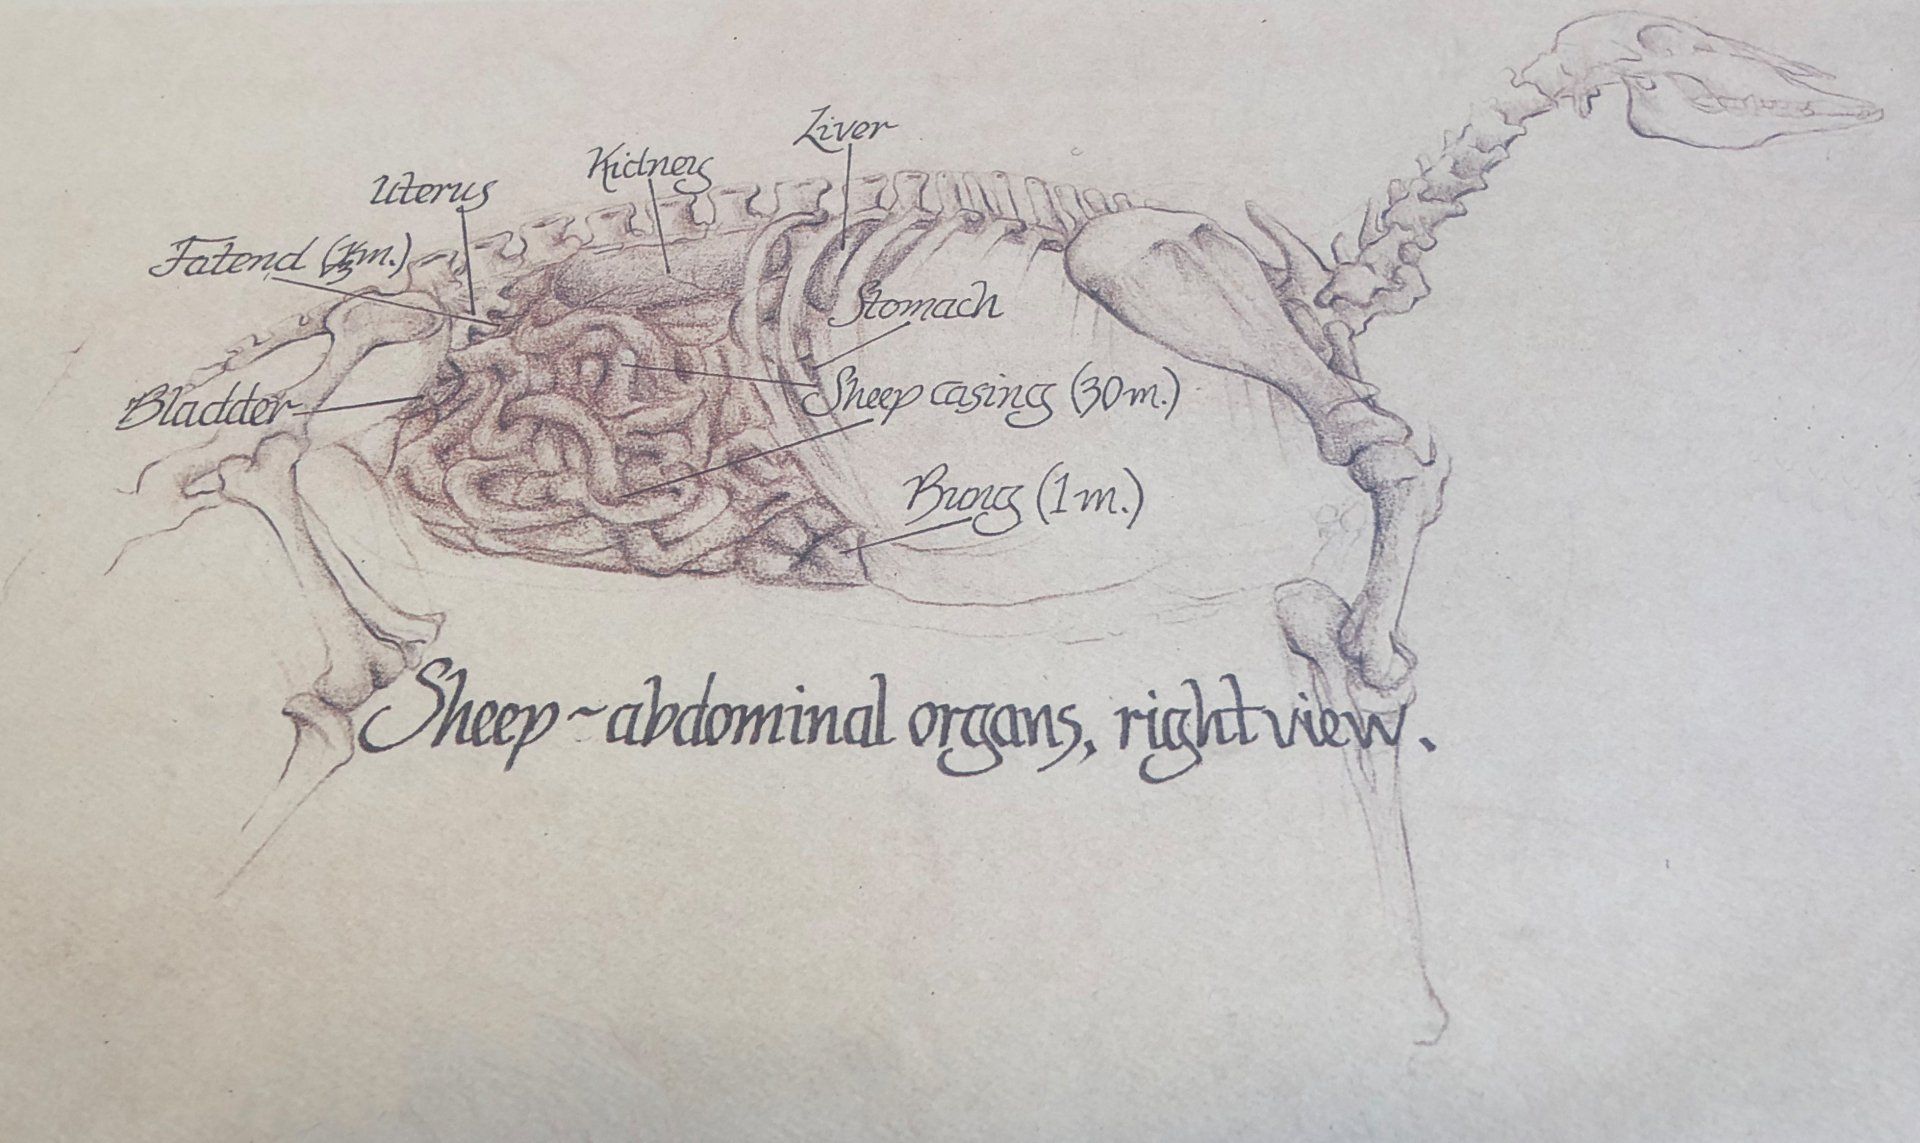 Liver
Kidney
Uterus
Fatend
Stomach
Sheep casing (30 m.)
Bladder
Bung (1 m.)
Sheep ~ abdominal organs, right view.